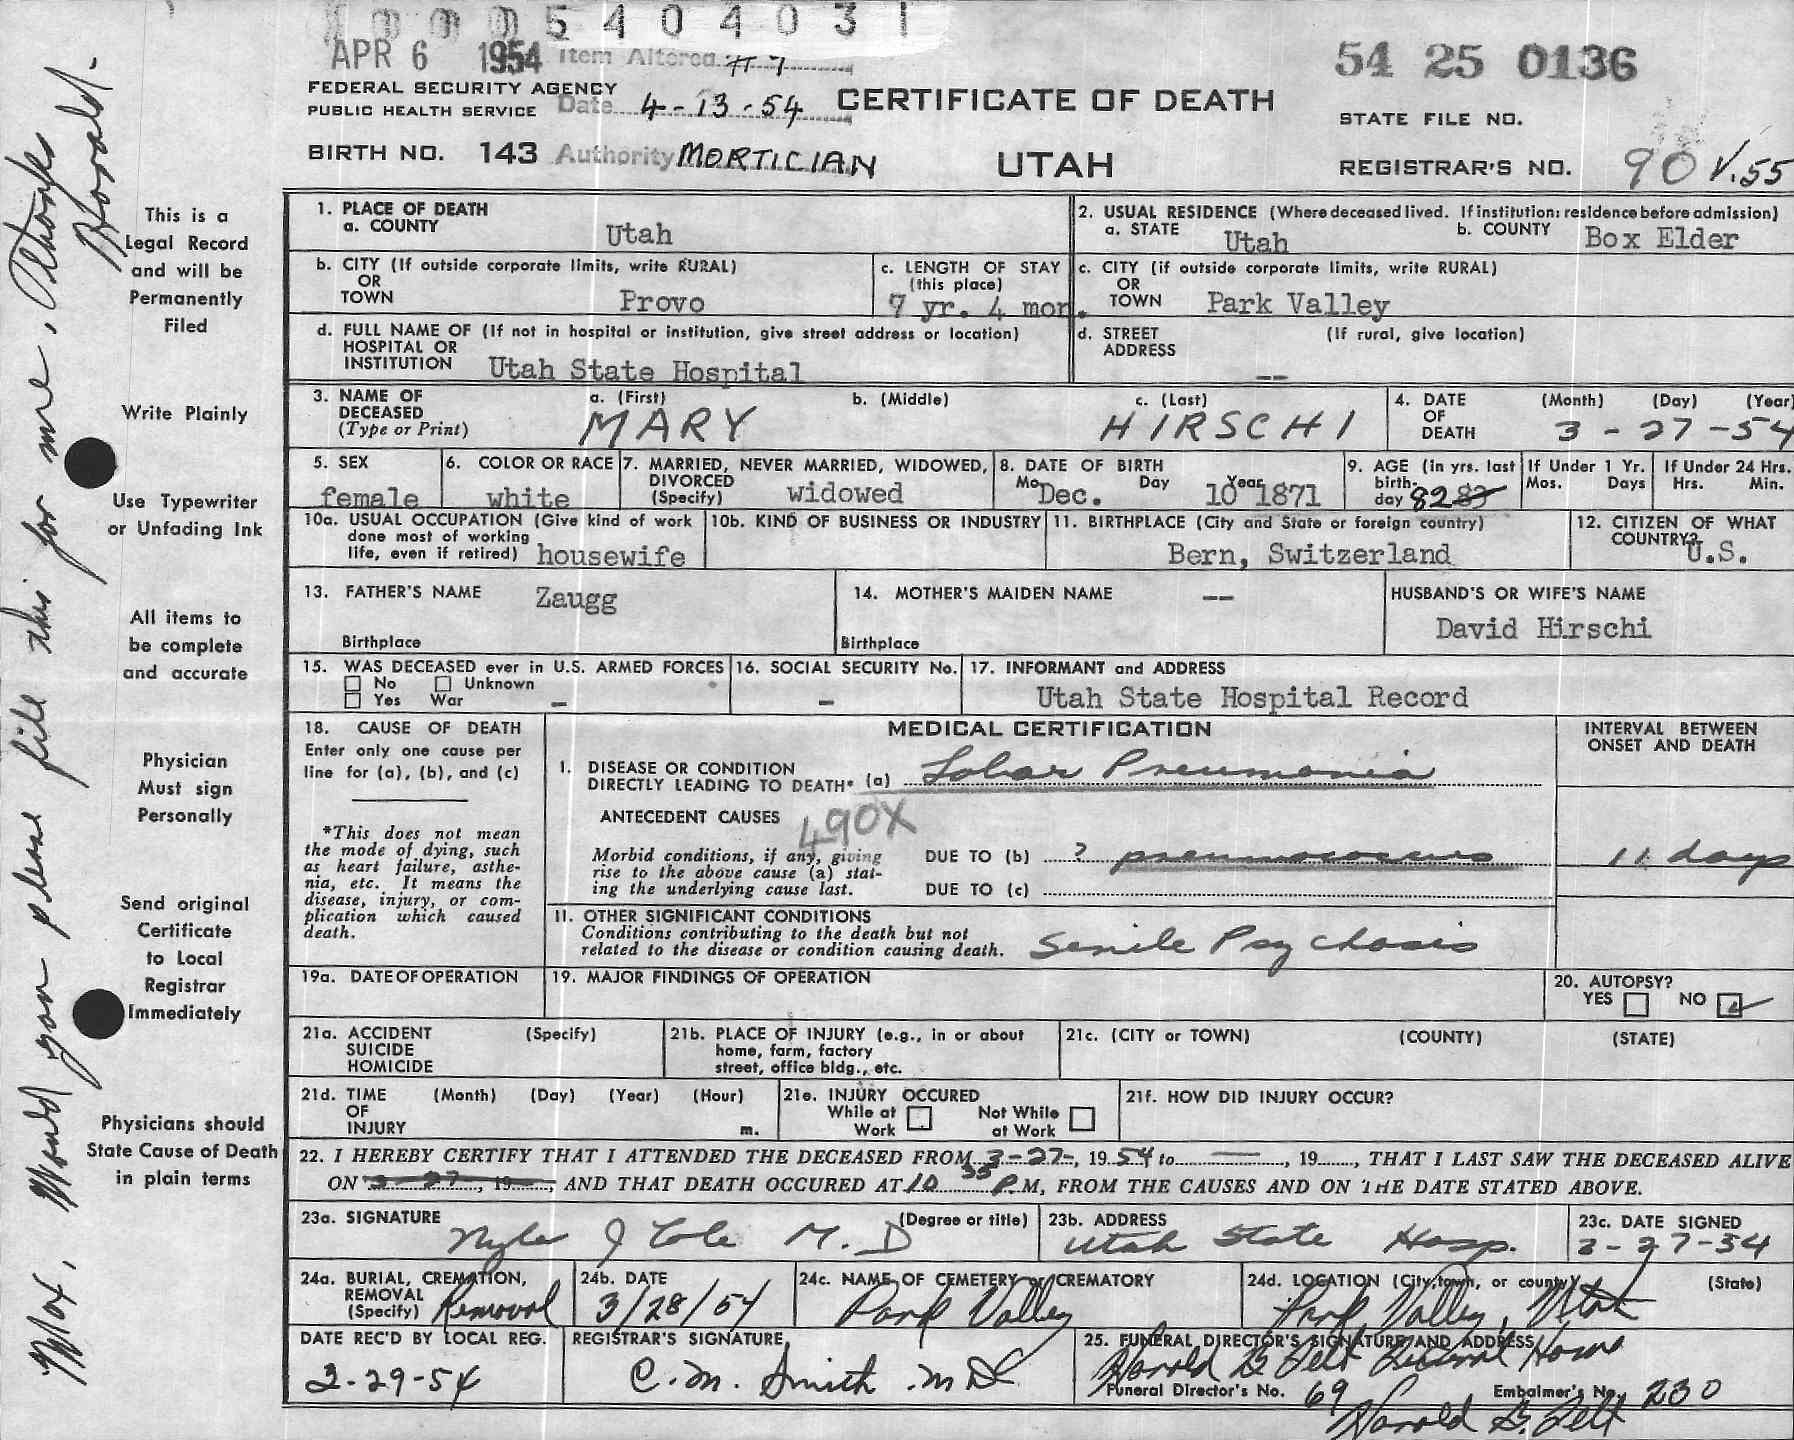 10005404031
APR 6 1954 Item Altered #7
54 25 0136
FEDERAL SECURITY AGENCY
PUBLIC HEALTH SERVICE
Date 4-13-54
CERTIFICATE OF DEATH
STATE FILE NO.
BIRTH NO. 143 Authority MORTICIAN
UTAH
REGISTRAR'S NO. 90 V.55
This is a
Legal Record
and will be
Permanently
Filed
Write Plainly
Use Typewriter
or Unfading Ink
All items to
be complete
and accurate
Physician
Must sign
Personally
Send original
Certificate
to Local
Registrar
Immediately
Physicians should
State Cause of Death
in plain terms
Would you please file this for me, Thanks
Harold.
1. PLACE OF DEATH
a. COUNTY Utah
2. USUAL RESIDENCE (Where deceased lived. If institution: residence before admission)
a. STATE Utah b. COUNTY Box Elder
b. CITY (If outside corporate limits, write RURAL)
OR
TOWN Provo
c. LENGTH OF STAY
(this place)
7 yr. 4 mon.
c. CITY (if outside corporate limits, write RURAL)
OR
TOWN Park Valley
d. FULL NAME OF (If not in hospital or institution, give street address or location)
HOSPITAL OR
INSTITUTION Utah State Hospital
d. STREET (If rural, give location)
ADDRESS --
3. NAME OF
DECEASED
(Type or Print)
a. (First) b. (Middle) c. (Last)
MARY HIRSCHI
4. DATE
OF
DEATH
(Month) (Day) (Year)
3 - 27 - 54
5. SEX
female
6. COLOR OR RACE
white
7. MARRIED, NEVER MARRIED, WIDOWED,
DIVORCED
(Specify) widowed
8. DATE OF BIRTH
Mo. Day Year
Dec. 10 1871
9. AGE (in yrs. last
birth-
day 82 83
If Under 1 Yr.
Mos. Days
If Under 24 Hrs.
Hrs. Min.
10a. USUAL OCCUPATION (Give kind of work
done most of working
life, even if retired) housewife
10b. KIND OF BUSINESS OR INDUSTRY
11. BIRTHPLACE (City and State or foreign country)
Bern, Switzerland
12. CITIZEN OF WHAT
COUNTRY?
U.S.
13. FATHER'S NAME Zaugg
Birthplace
14. MOTHER'S MAIDEN NAME --
Birthplace
HUSBAND'S OR WIFE'S NAME
David Hirschi
15. WAS DECEASED ever in U.S. ARMED FORCES
No Unknown
Yes War -
16. SOCIAL SECURITY No.
-
17. INFORMANT and ADDRESS
Utah State Hospital Record
18. CAUSE OF DEATH
Enter only one cause per
line for (a), (b), and (c)
*This does not mean
the mode of dying, such
as heart failure, asthe-
nia, etc. It means the
disease, injury, or com-
plication which caused
death.
MEDICAL CERTIFICATION
INTERVAL BETWEEN
ONSET AND DEATH
I. DISEASE OR CONDITION
DIRECTLY LEADING TO DEATH* (a) Lobar Pneumonia
ANTECEDENT CAUSES 490X
Morbid conditions, if any, giving
rise to the above cause (a) stat-
ing the underlying cause last.
DUE TO (b) ? pneumococcus 11 days
DUE TO (c)
II. OTHER SIGNIFICANT CONDITIONS
Conditions contributing to the death but not
related to the disease or condition causing death. Senile Psychosis
19a. DATE OF OPERATION
19. MAJOR FINDINGS OF OPERATION
20. AUTOPSY?
YES NO
21a. ACCIDENT (Specify)
SUICIDE
HOMICIDE
21b. PLACE OF INJURY (e.g., in or about
home, farm, factory
street, office bldg., etc.
21c. (CITY or TOWN) (COUNTY) (STATE)
21d. TIME (Month) (Day) (Year) (Hour)
OF
INJURY m.
21e. INJURY OCCURED
While at Work
Not While at Work
21f. HOW DID INJURY OCCUR?
22. I HEREBY CERTIFY THAT I ATTENDED THE DECEASED FROM 3-27-, 1954 to ----, 19...., THAT I LAST SAW THE DECEASED ALIVE
ON 3-27, 19...., AND THAT DEATH OCCURED AT 10 35 P.M, FROM THE CAUSES AND ON THE DATE STATED ABOVE.
23a. SIGNATURE (Degree or title)
Nyle J Cole M.D
23b. ADDRESS
Utah State Hosp.
23c. DATE SIGNED
3-27-54
24a. BURIAL, CREMATION,
REMOVAL
(Specify) Removal
24b. DATE
3/28/54
24c. NAME OF CEMETERY or CREMATORY
Park Valley
24d. LOCATION (City, town, or county) (State)
Park Valley, Utah
DATE REC'D BY LOCAL REG.
3-29-54
REGISTRAR'S SIGNATURE
C. M. Smith M.D.
25. FUNERAL DIRECTOR'S SIGNATURE AND ADDRESS
Harold B. Felt Funeral Home
Funeral Director's No. 69 Embalmer's No. 230
Harold B. Felt